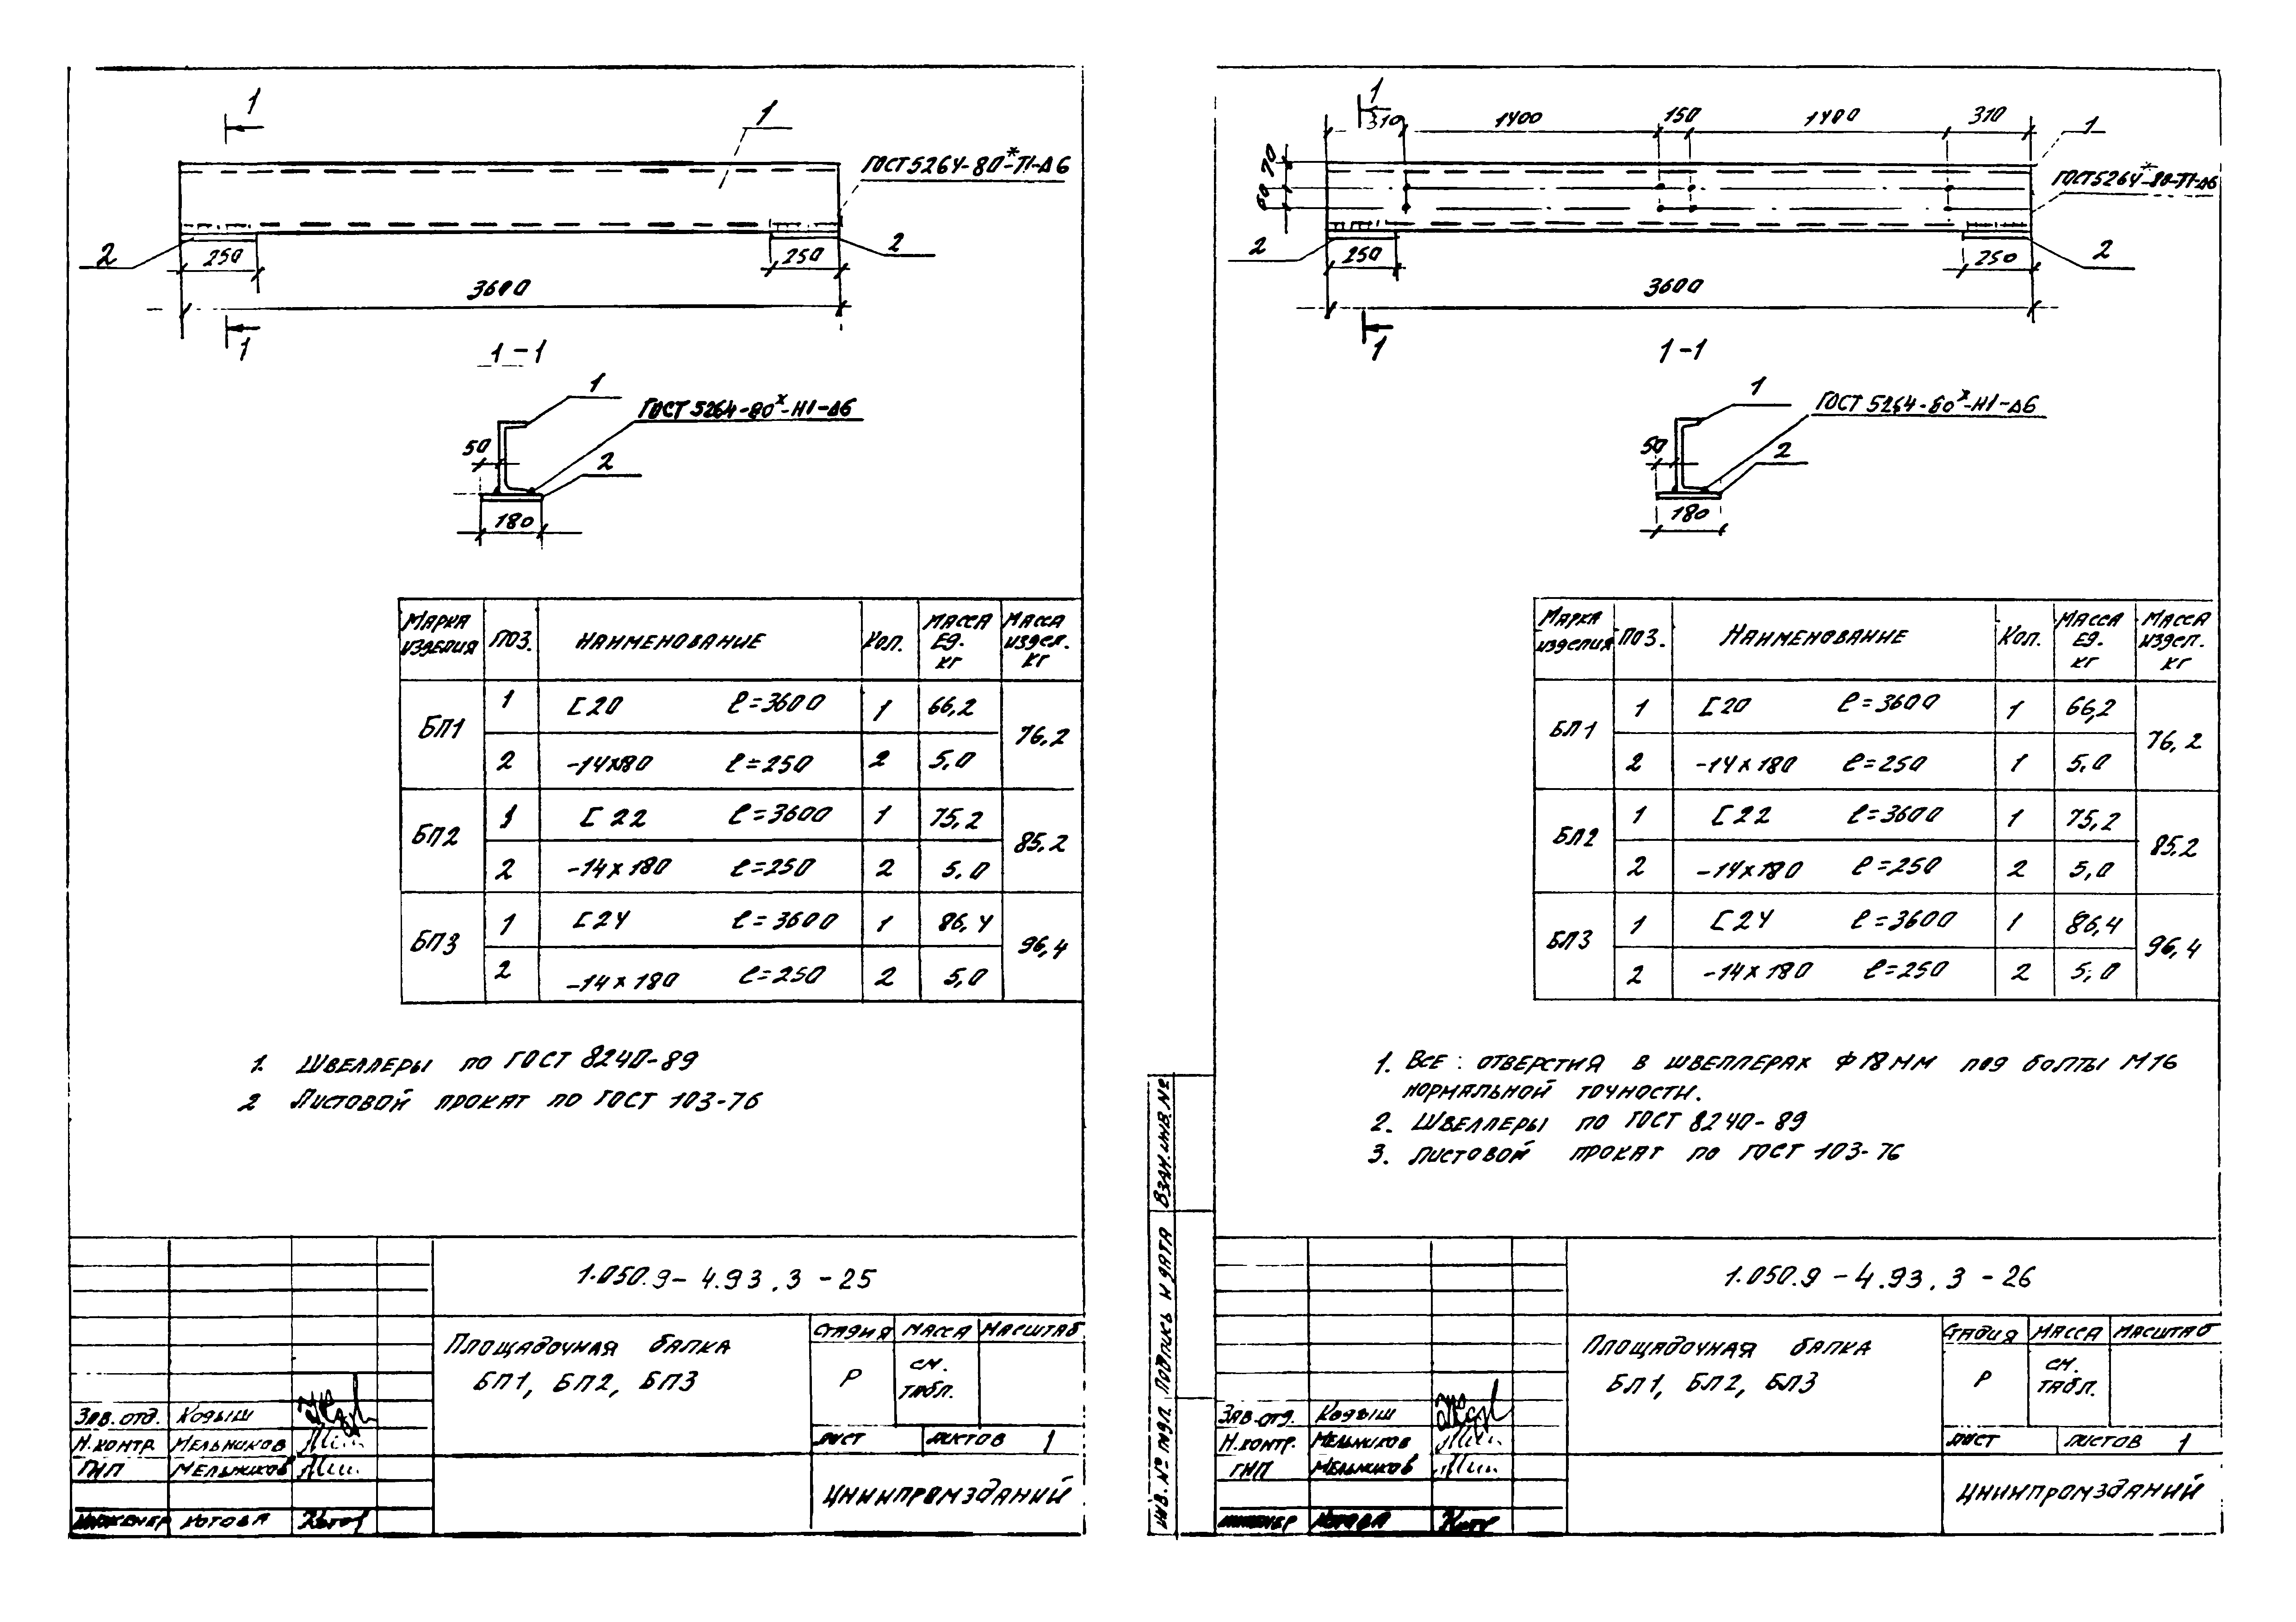 1
1
ГОСТ 5264-80*-Т1-Δ6
2
250
250
2
3600
1
1-1
1
ГОСТ 5264-80*-Н1-Δ6
50
2
180
МАРКА ИЗДЕЛИЯ ПОЗ. НАИМЕНОВАНИЕ КОЛ. МАССА ЕД. КГ МАССА ИЗДЕЛ. КГ
БП1 1 [20 ℓ=3600 1 66,2 76,2
2 -14х180 ℓ=250 2 5,0
БП2 1 [22 ℓ=3600 1 75,2 85,2
2 -14х180 ℓ=250 2 5,0
БП3 1 [24 ℓ=3600 1 86,4 96,4
2 -14х180 ℓ=250 2 5,0
1. ШВЕЛЛЕРЫ ПО ГОСТ 8240-89
2 ЛИСТОВОЙ ПРОКАТ ПО ГОСТ 103-76
1.050.9-4.93.3-25
ПЛОЩАДОЧНАЯ БАЛКА
БП1, БП2, БП3
СТАДИЯ МАССА МАСШТАБ
Р СМ. ТАБЛ.
ЛИСТ ЛИСТОВ 1
ЦНИИПРОМЗДАНИЙ
ЗАВ. ОТД. КОДЫШ
Н.КОНТР МЕЛЬНИКОВ
ГИП МЕЛЬНИКОВ
ИНЖЕНЕР КОТОВА
1
310 1400 150 1400 310
1
70
60
ГОСТ 5264*-80-Т1-Δ6
2
250
250
2
3600
1
1-1
1
ГОСТ 5264-80*-Н1-Δ6
50
2
180
МАРКА ИЗДЕЛИЯ ПОЗ. НАИМЕНОВАНИЕ КОЛ. МАССА ЕД. КГ МАССА ИЗДЕЛ. КГ
БП1 1 [20 ℓ=3600 1 66,2 76,2
2 -14х180 ℓ=250 1 5,0
БП2 1 [22 ℓ=3600 1 75,2 85,2
2 -14х180 ℓ=250 2 5,0
БП3 1 [24 ℓ=3600 1 86,4 96,4
2 -14х180 ℓ=250 2 5,0
1. ВСЕ : ОТВЕРСТИЯ В ШВЕЛЛЕРАХ Ф18ММ ПОД БОЛТЫ М16
НОРМАЛЬНОЙ ТОЧНОСТИ.
2. ШВЕЛЛЕРЫ ПО ГОСТ 8240-89
3. ЛИСТОВОЙ ПРОКАТ ПО ГОСТ 103-76
ИНВ. № ПОДЛ. ПОДПИСЬ И ДАТА ВЗАМ. ИНВ. №
1.050.9-4.93.3-26
ПЛОЩАДОЧНАЯ БАЛКА
БП1, БП2, БП3
СТАДИЯ МАССА МАСШТАБ
Р СМ. ТАБЛ.
ЛИСТ ЛИСТОВ 1
ЦНИИПРОМЗДАНИЙ
ЗАВ. ОТД. КОДЫШ
Н.КОНТР. МЕЛЬНИКОВ
ГИП МЕЛЬНИКОВ
ИНЖЕНЕР КОТОВА